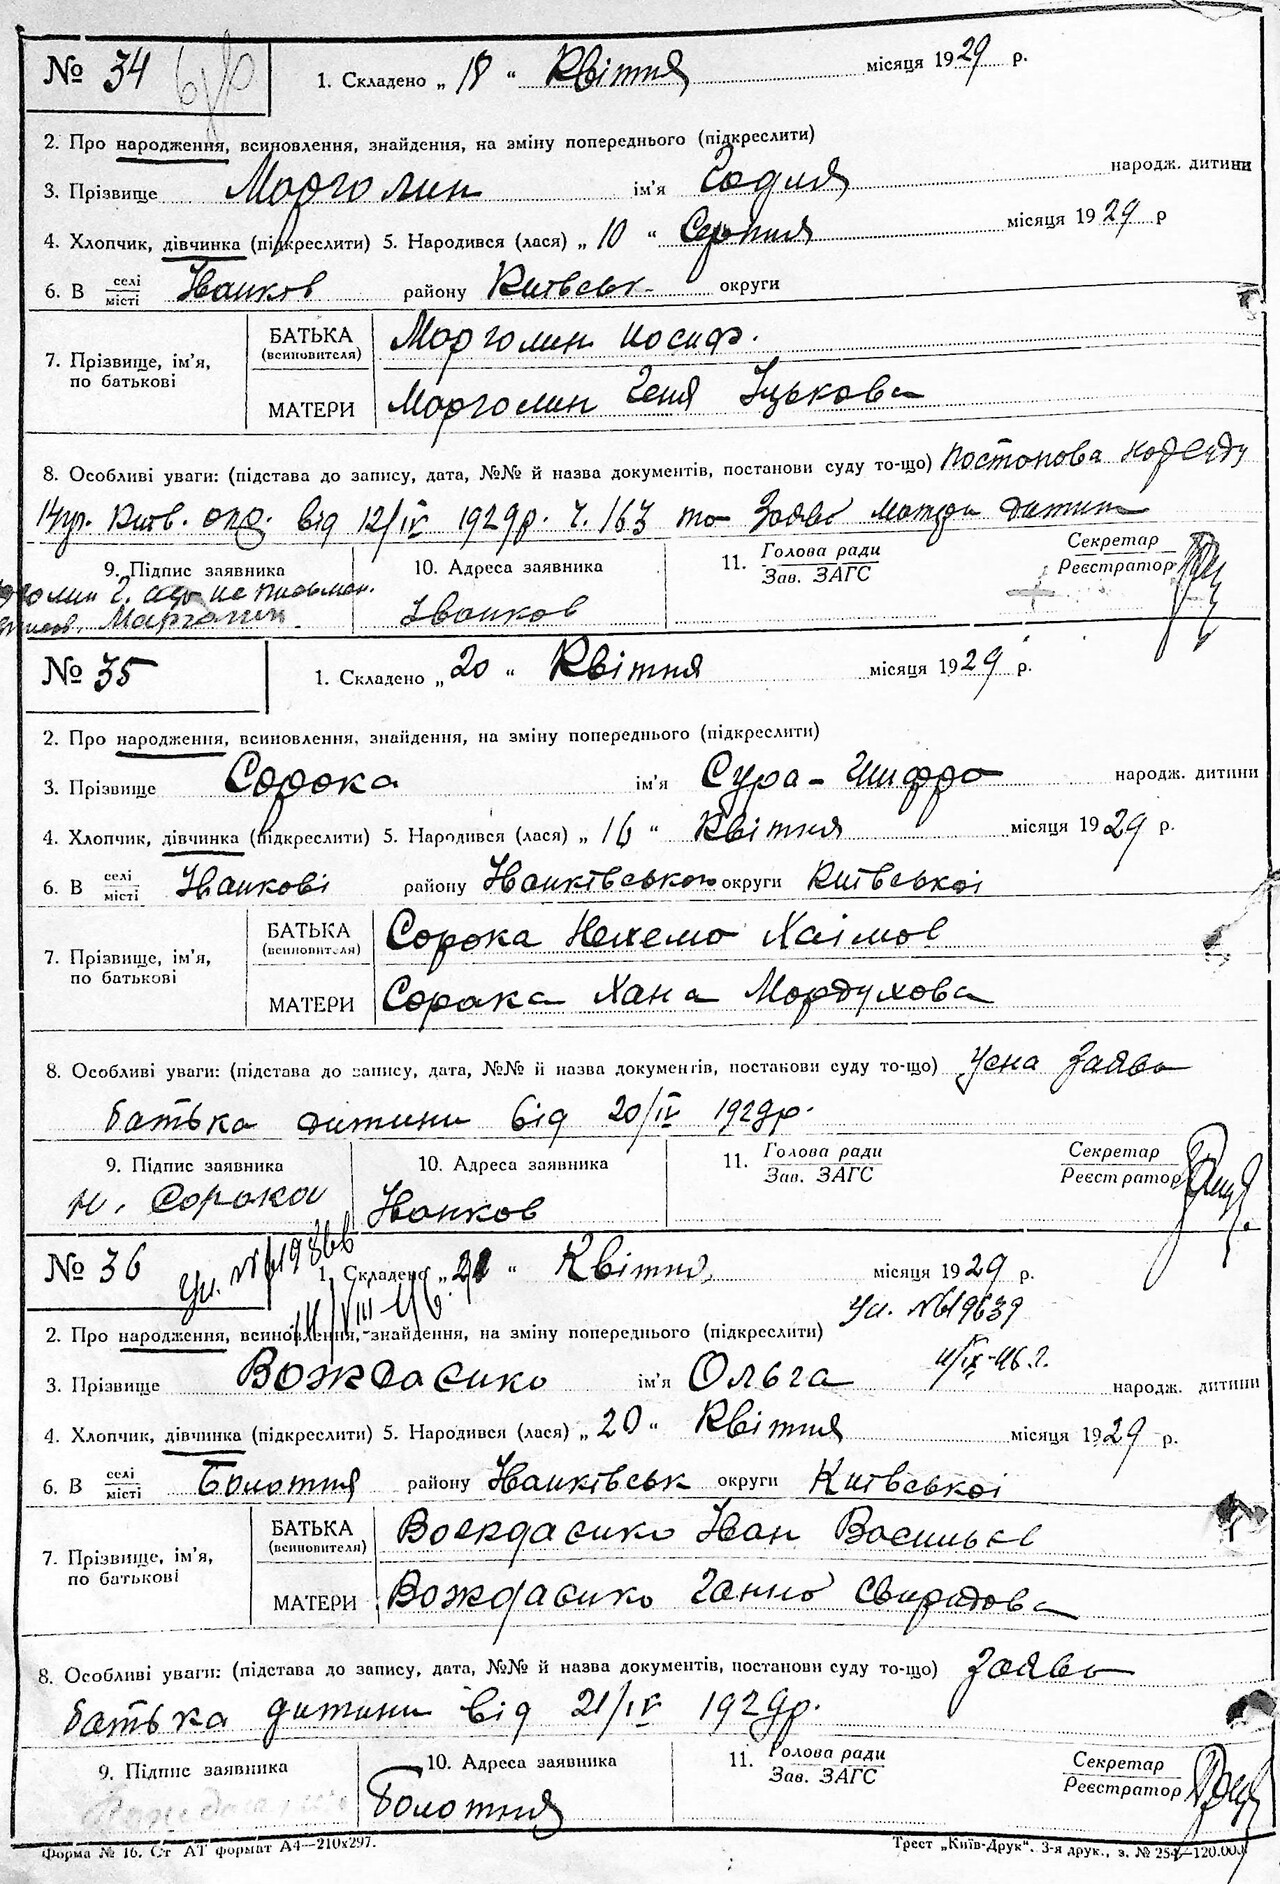 № 34 1. Складено „ 18 “ Квітня місяця 1929 р.
2. Про народження, всиновлення, знайдення, на зміну попереднього (підкреслити)
3. Прізвище Марголин ім'я народж. дитини
4. Хлопчик, дівчинка (підкреслити) 5. Народився (лася) „ 10 “ Серпня місяця 1929 р
6. В селі/місті Іванков району Київськ. округи
7. Прізвище, ім'я, по батькові
БАТЬКА (всиновителя) Марголин Иосиф.
МАТЕРИ Марголин Геня Іцькова
8. Особливі уваги: (підстава до запису, дата, №№ й назва документів, постанови суду то-що) Постанова Нарсуду
Київ. окр. від 12/IV 1929р. ч. 163 та Заяві матери дитини
9. Підпис заявника 10. Адреса заявника 11. Голова ради / Зав. ЗАГС Секретар / Реєстратор
Марголин Іванков
№ 35 1. Складено „ 20 “ Квітня місяця 1929 р.
2. Про народження, всиновлення, знайдення, на зміну попереднього (підкреслити)
3. Прізвище Сорока ім'я Сура - Шифра народж. дитини
4. Хлопчик, дівчинка (підкреслити) 5. Народився (лася) „ 16 “ Квітня місяця 1929 р.
6. В селі/місті Іванкові району Іванківського округи Київської
7. Прізвище, ім'я, по батькові
БАТЬКА (всиновителя) Сорока Нехема Хаімов
МАТЕРИ Сорока Хана Мордухова
8. Особливі уваги: (підстава до запису, дата, №№ й назва документів, постанови суду то-що) Усна Заява
батька дитини від 20/IV 1929р.
9. Підпис заявника 10. Адреса заявника 11. Голова ради / Зав. ЗАГС Секретар / Реєстратор
Н. Сорока Іванков
№ 36 1. Складено „ 21 “ Квітня місяця 1929 р.
2. Про народження, всиновлення, знайдення, на зміну попереднього (підкреслити)
3. Прізвище ім'я Ольга народж. дитини
4. Хлопчик, дівчинка (підкреслити) 5. Народився (лася) „ 20 “ Квітня місяця 1929 р.
6. В селі/місті Болотня району Іванківськ округи Київської
7. Прізвище, ім'я, по батькові
БАТЬКА (всиновителя) Іван Васильєв
МАТЕРИ Ганна Свиридова
8. Особливі уваги: (підстава до запису, дата, №№ й назва документів, постанови суду то-що) Заява
батька дитини від 21/IV 1929р.
9. Підпис заявника 10. Адреса заявника 11. Голова ради / Зав. ЗАГС Секретар / Реєстратор
Болотня
Форма № 16. Ст АТ формат А4—210х297. Трест „Київ-Друк“. 3-я друк., з. № 254—120.000